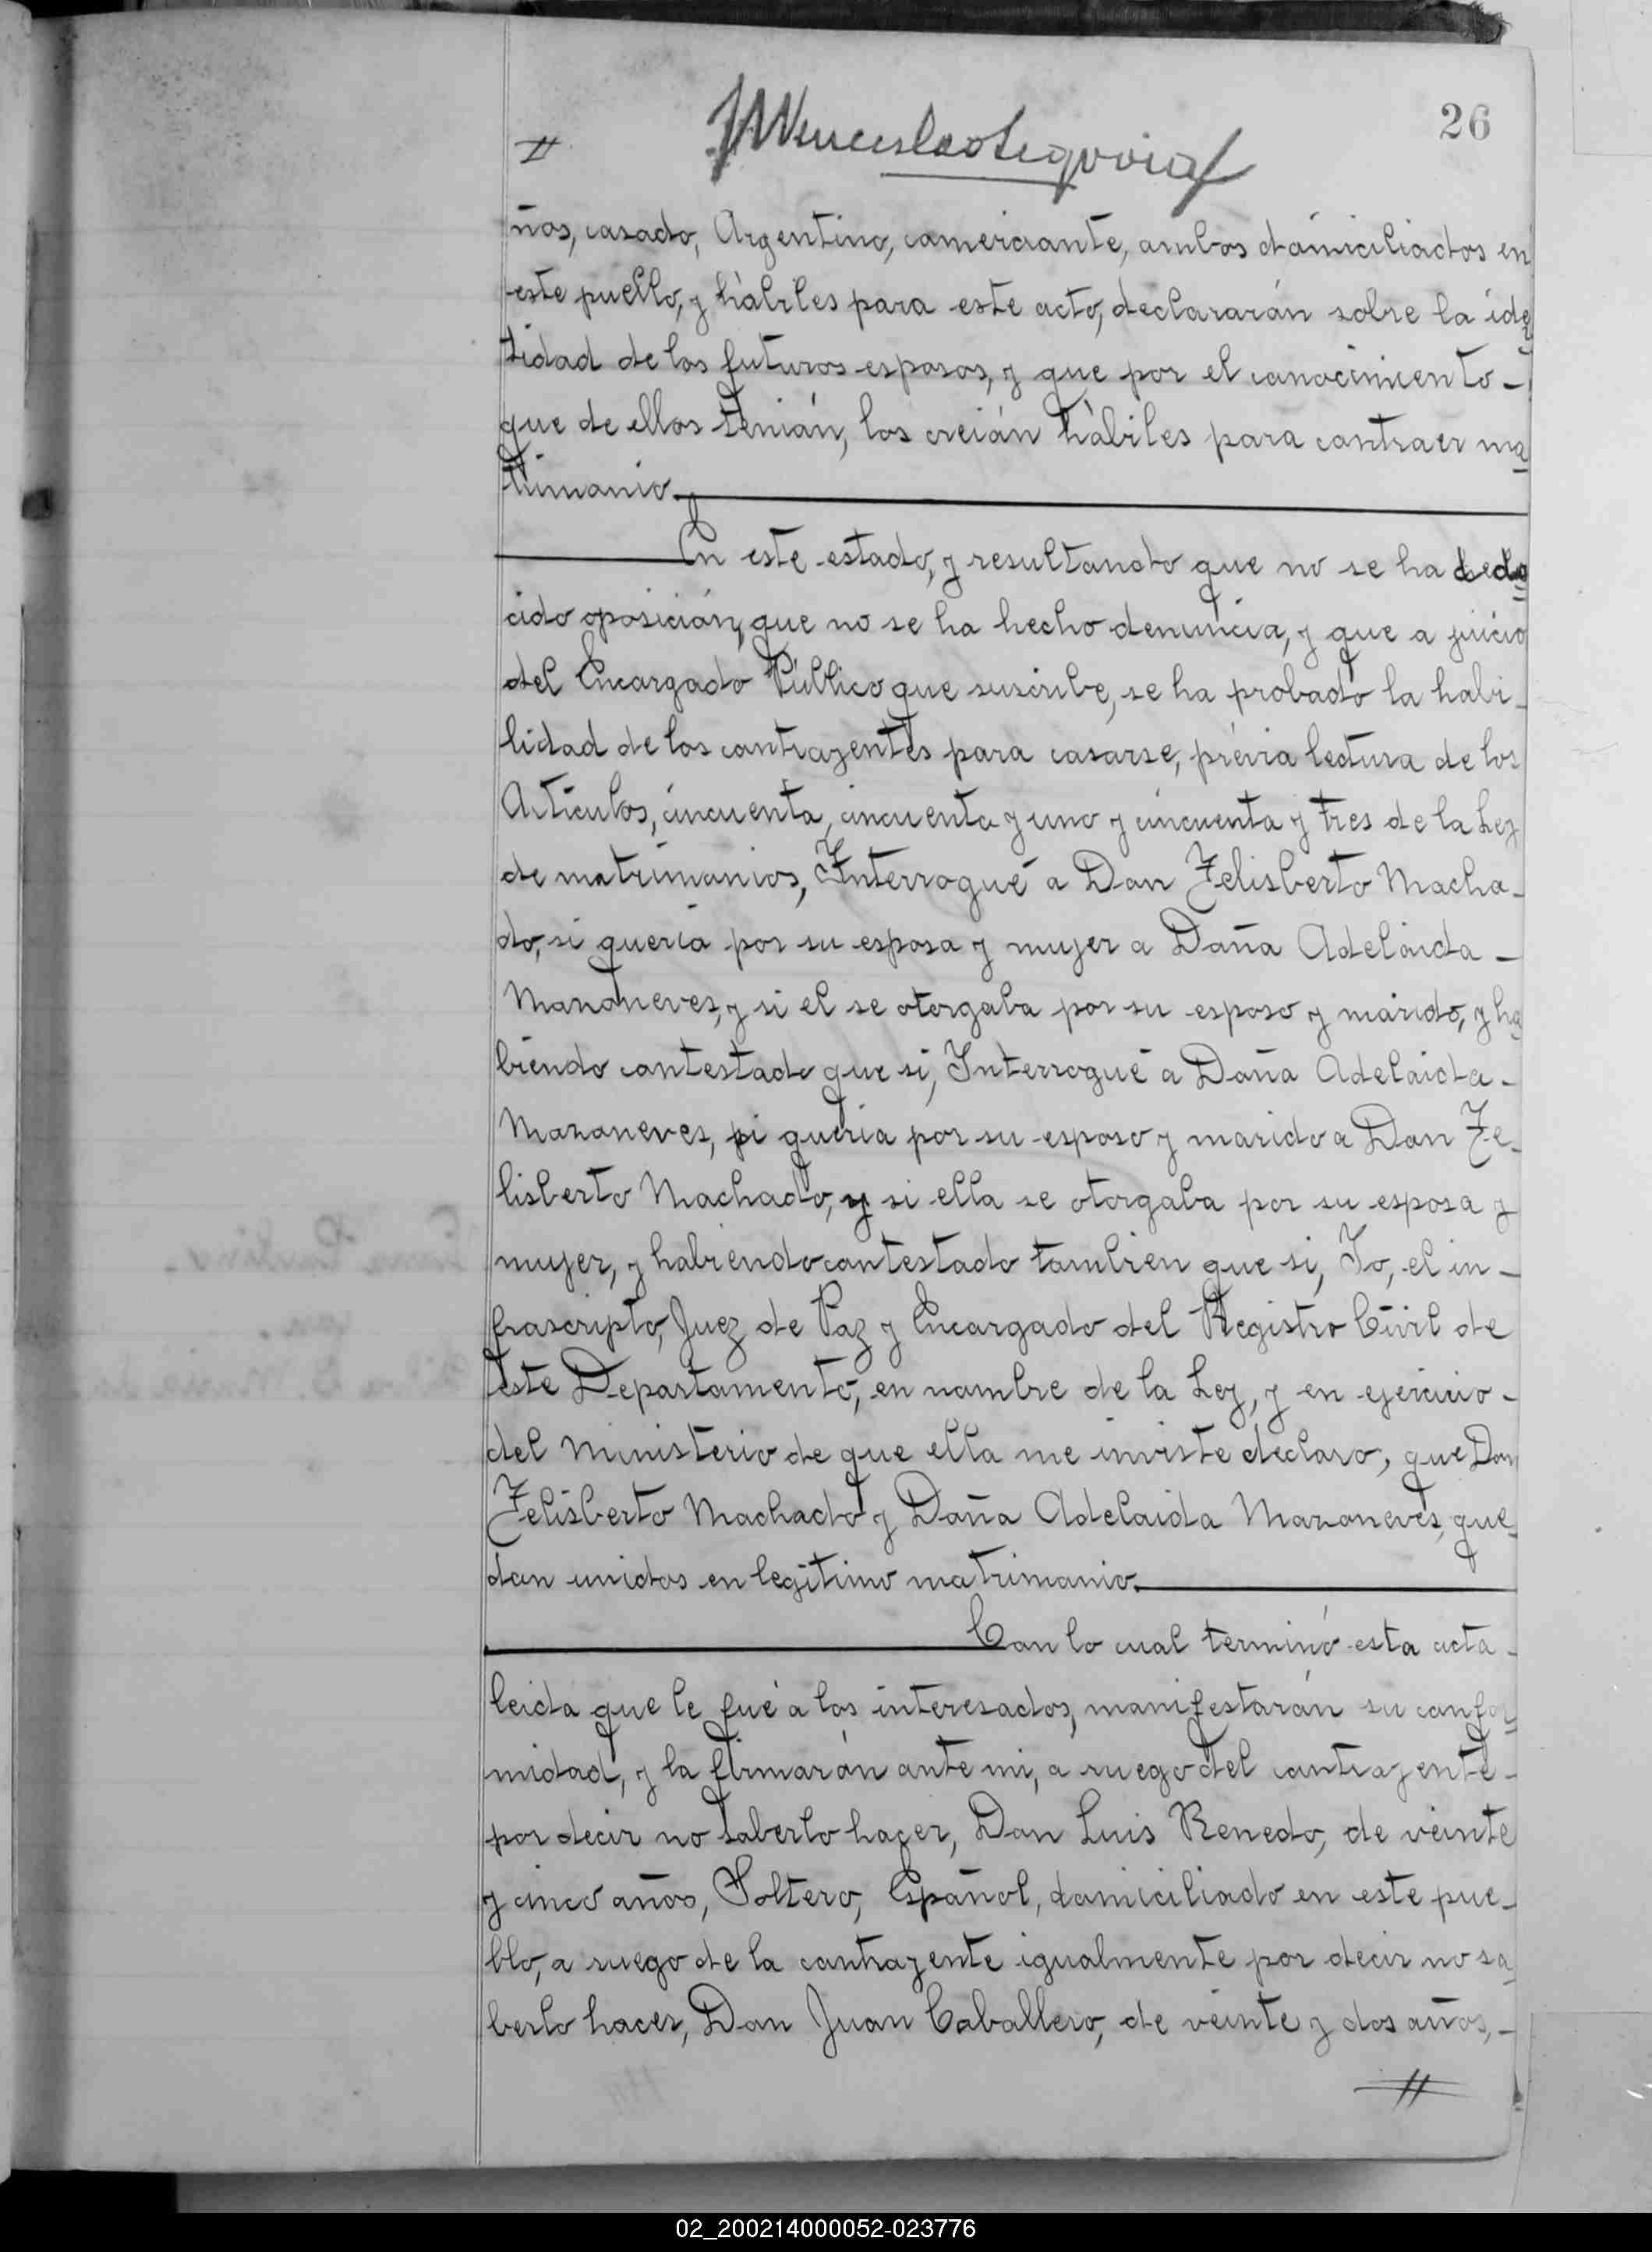 26
Wenceslao Segovia
ños, casado, Argentino, comerciante, ambos domiciliados en
este pueblo, y hàbiles para este acto, declararán sobre la iden
tidad de los futuros esposos, y que por el conocimiento -
que de ellos tenián, los creián hàbiles para contraer ma
trimonio.
En este estado, y resultando que no se ha dedu
cido oposición, que no se ha hecho denuncia, y que a juicio
del Encargado Público que suscribe, se ha probado la habi-
lidad de los contrayentes para casarse, prévia lectura de los
Artículos, cincuenta, cincuenta y uno y cincuenta y tres de la Ley
de matrimonios, Interrogué a Don Felisberto Macha-
do, si quería por su esposa y mujer a Doña Adelaida -
Mazaneves, y si el se otorgaba por su esposo y marido, y ha
biendo contestado que si, Interrogué a Doña Adelaida -
Mazaneves, si quería por su esposo y marido a Don Fe-
lisberto Machado, y si ella se otorgaba por su esposa y
mujer, y habiendo contestado tambien que si, Yo, el in-
frascripto, Juez de Paz y Encargado del Registro Civil de
este Departamento, en nombre de la Ley, y en ejercicio -
del Ministerio de que ella me inviste declaro, que Don
Felisberto Machado y Doña Adelaida Mazaneves, que
dan unidos en legítimo matrimonio.
Con lo cual terminó esta acta -
leida que le fué a los interesados, manifestarán su confor
midad, y la firmarán ante mi, a ruego del contrayente -
por decir no saberlo hacer, Don Luis Renedo, de veinte
y cinco años, Soltero, Español, domiciliado en este pue-
blo, a ruego de la contrayente igualmente por decir no sa
berlo hacer, Don Juan Caballero, de veinte y dos años, -
02_200214000052-023776